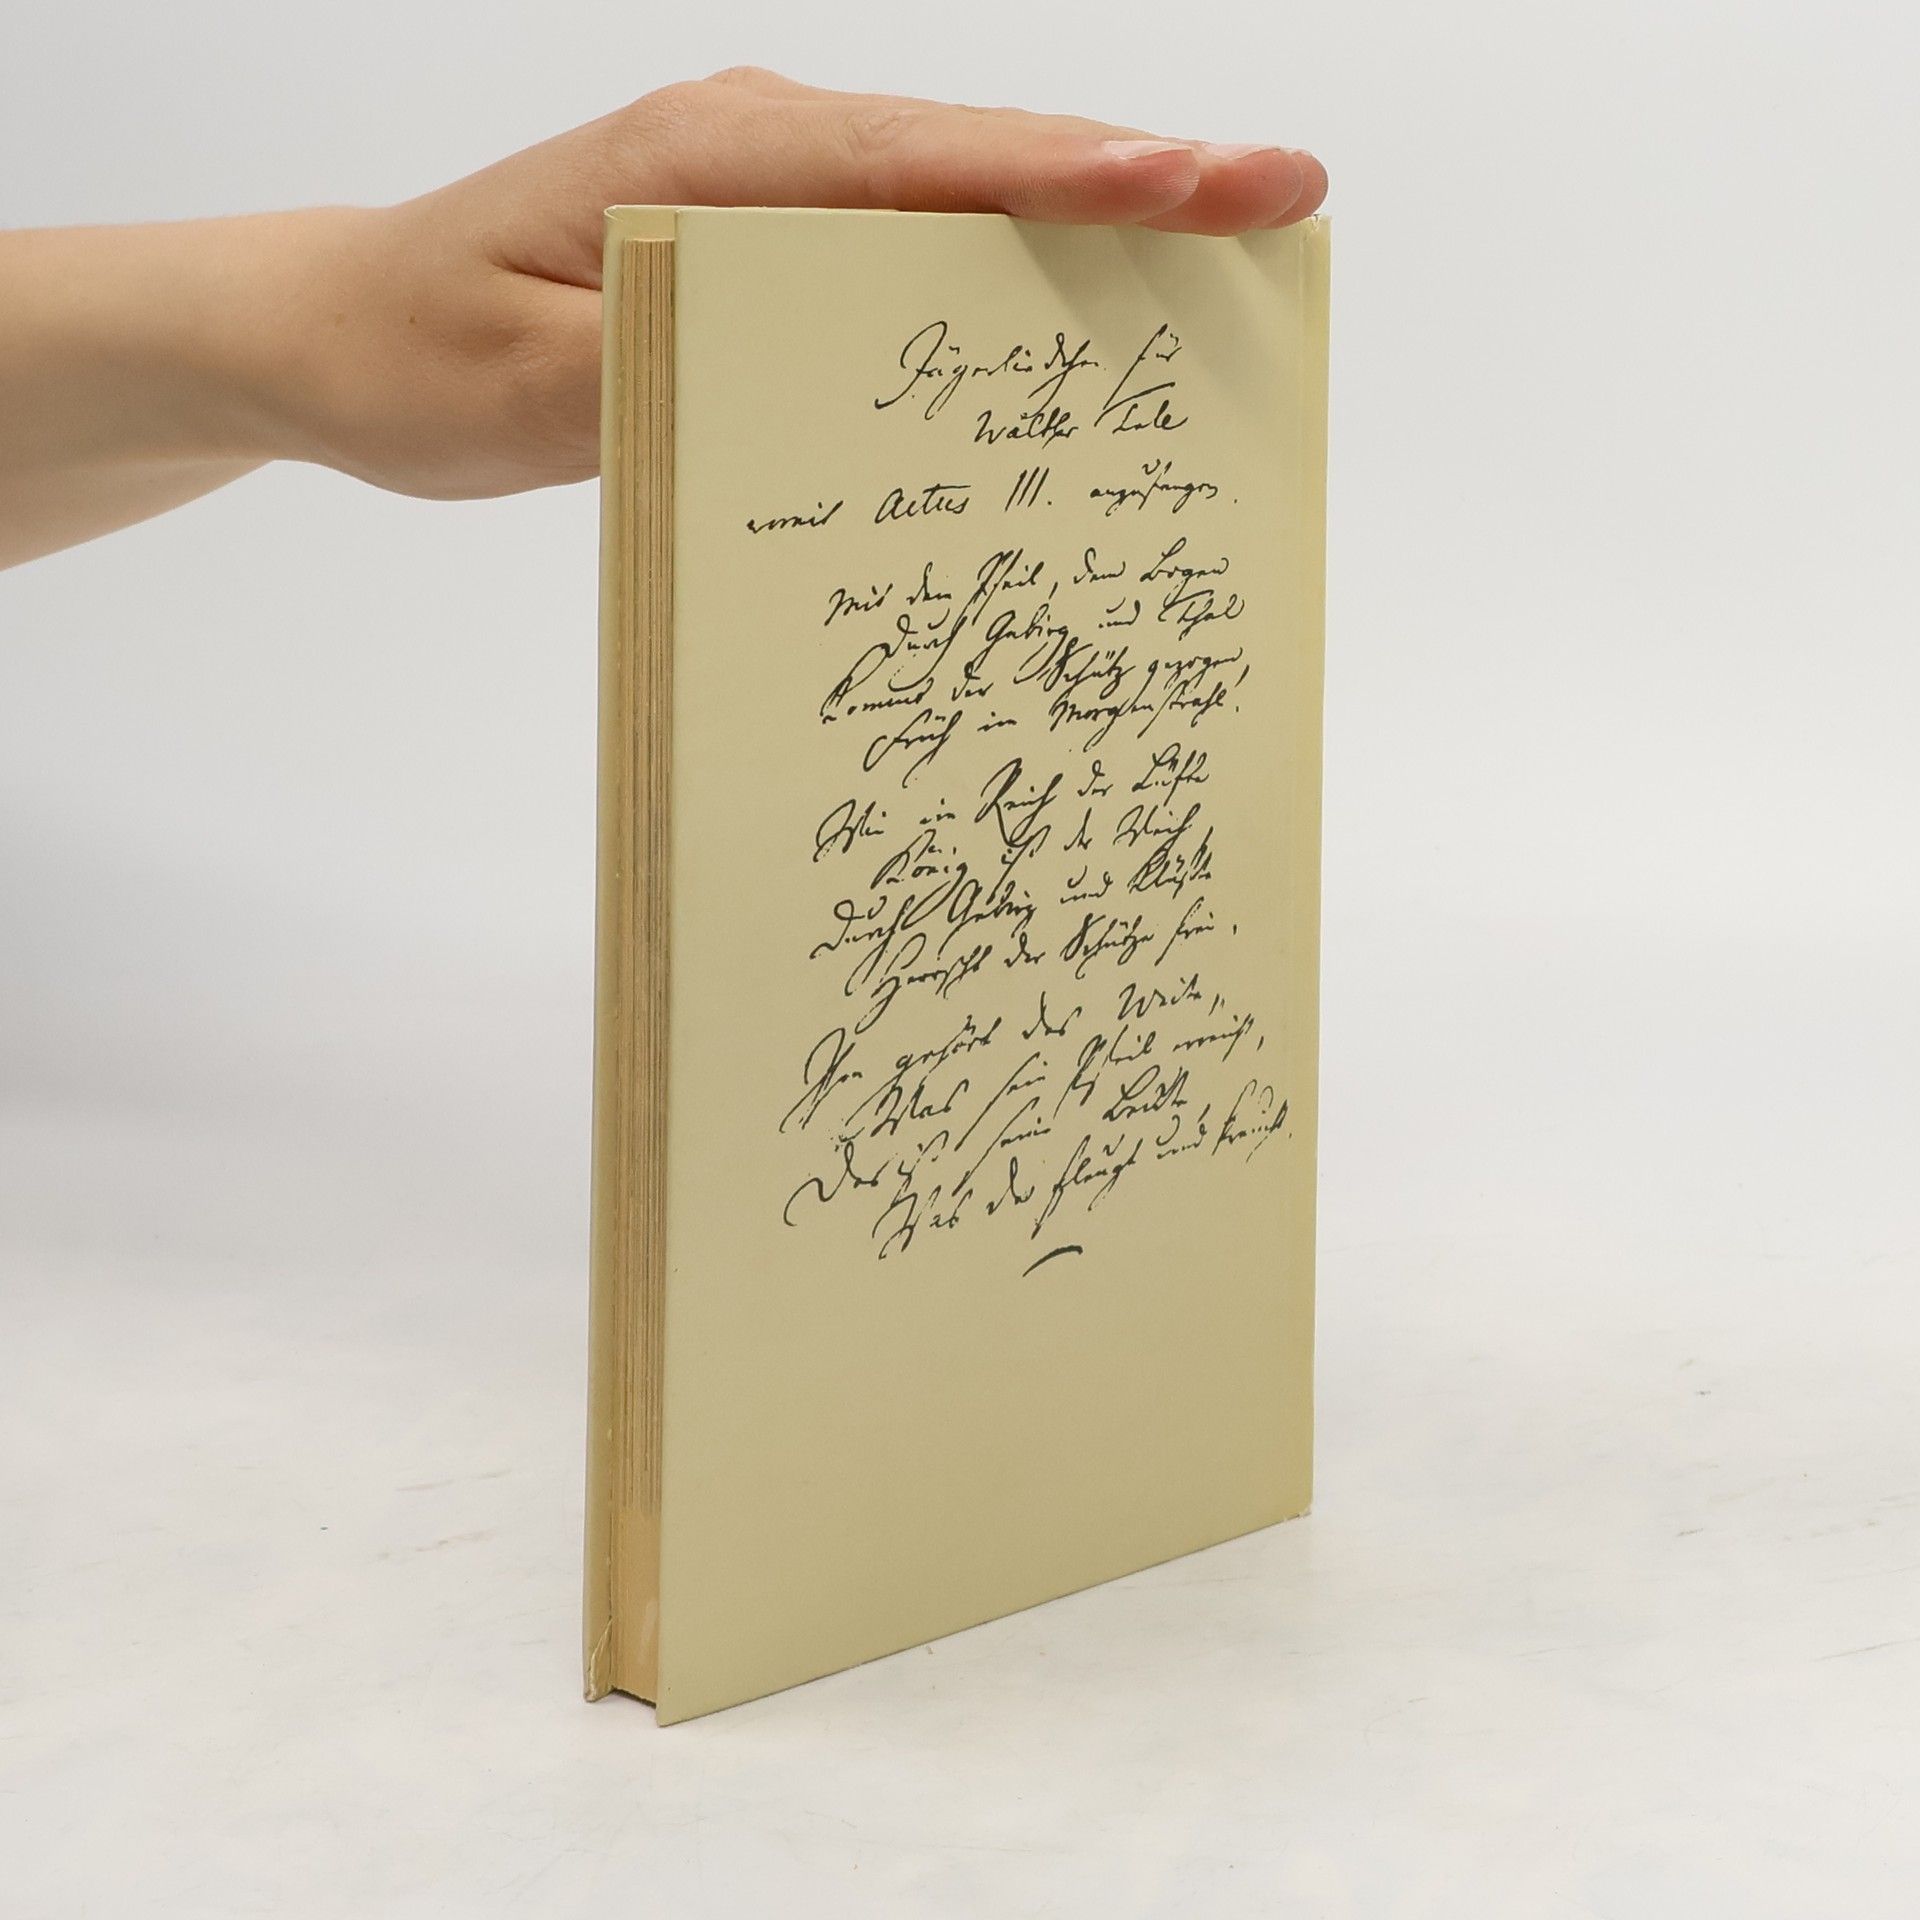 Jägerliedchen für
Walther Tell
womit Actus III. anzufangen.
Mit dem Pfeil, dem Bogen
Durch Gebirg und Thal
Kommt der Schütz gezogen,
Früh im Morgenstrahl.
Wie im Reich der Lüfte
König ist der Weih,
Durch Gebirg und Klüfte
Herrscht der Schütze frei.
Ihm gehört das Weite,
Was sein Pfeil erreicht,
Das ist seine Beute,
Was da fleugt und kreucht.